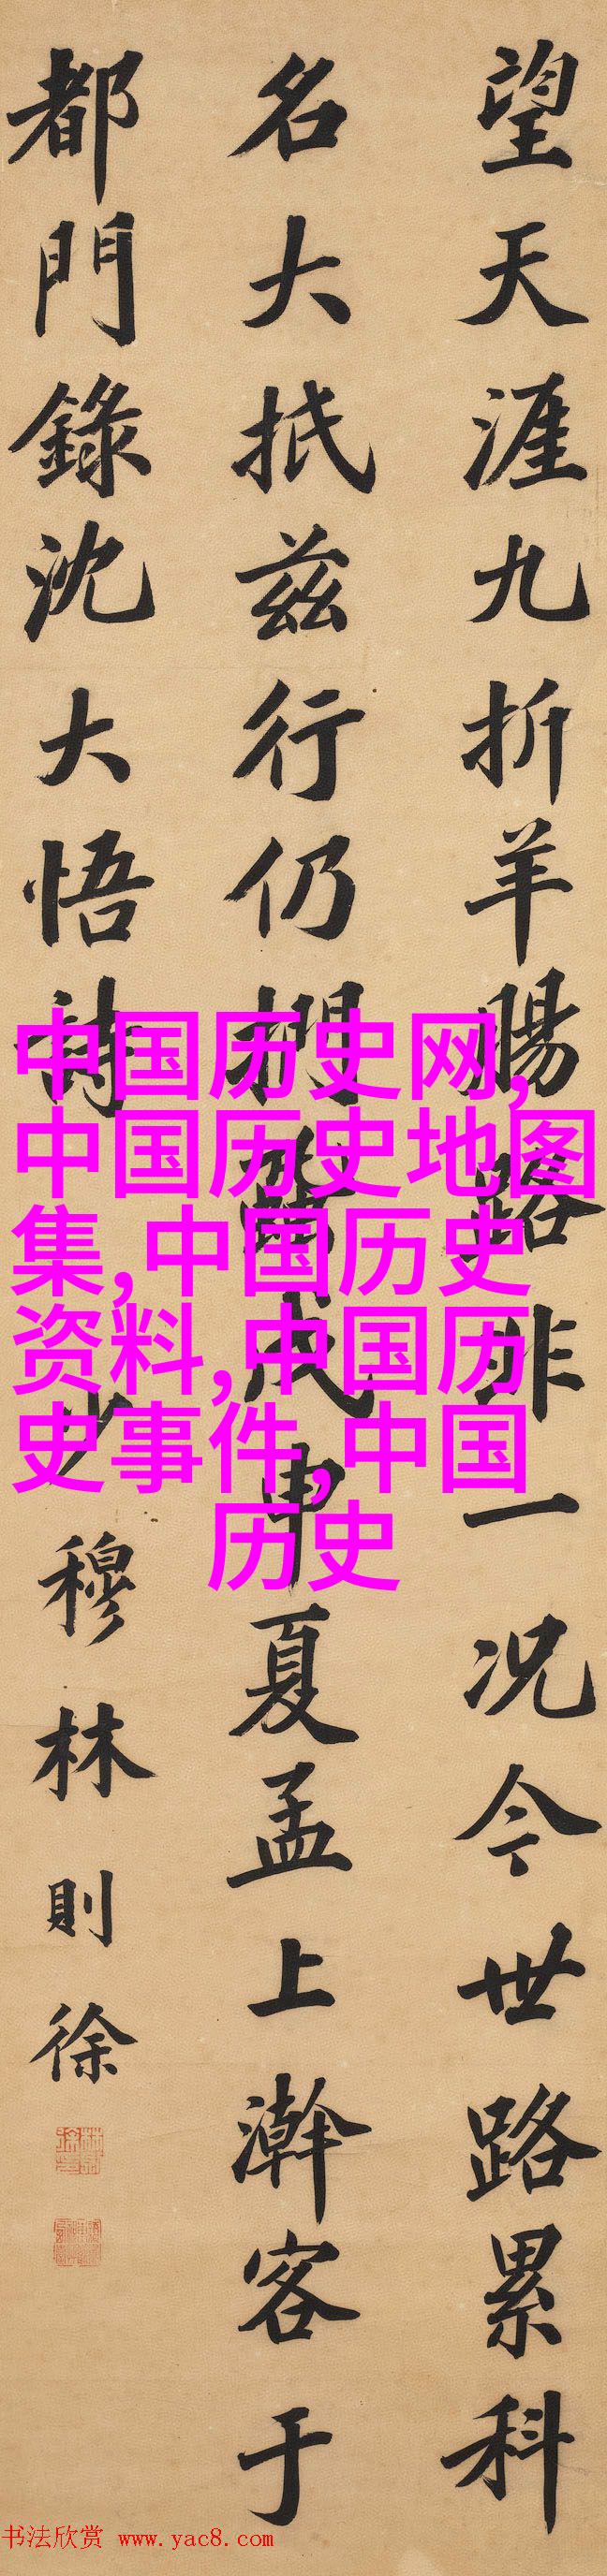 望天涯九折羊腸路非一况今世路累科
名大抵兹行仍捫戊申夏孟上澣客于
都門錄沈大悟詩
少穆林則徐
中国历史网,
中国历史地图
集,中国历史
资料,中国历
史事件,中国
历史
书法欣赏 www.yac8.com